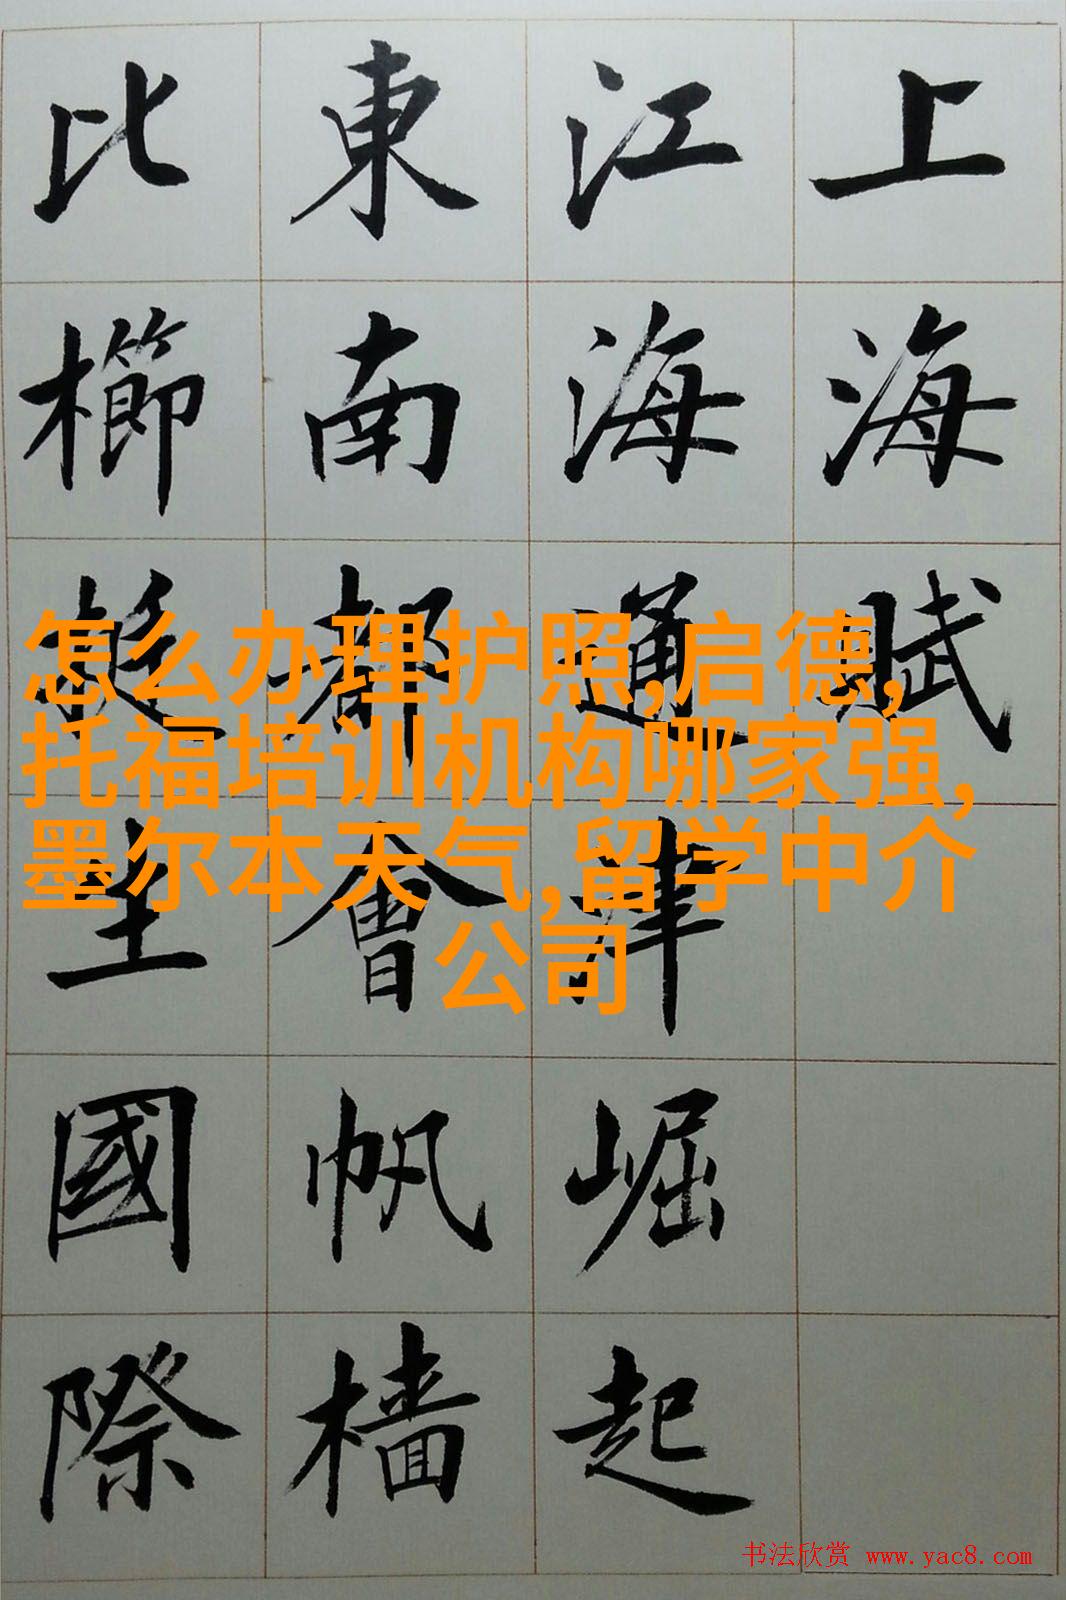 上海賦
江海通津崛起
東南都會帆檣
比櫛挺立國際
怎么办理护照,启德,
托福培训机构哪家强,
墨尔本天气,留学中介
公司
书法欣赏 www.yac8.com